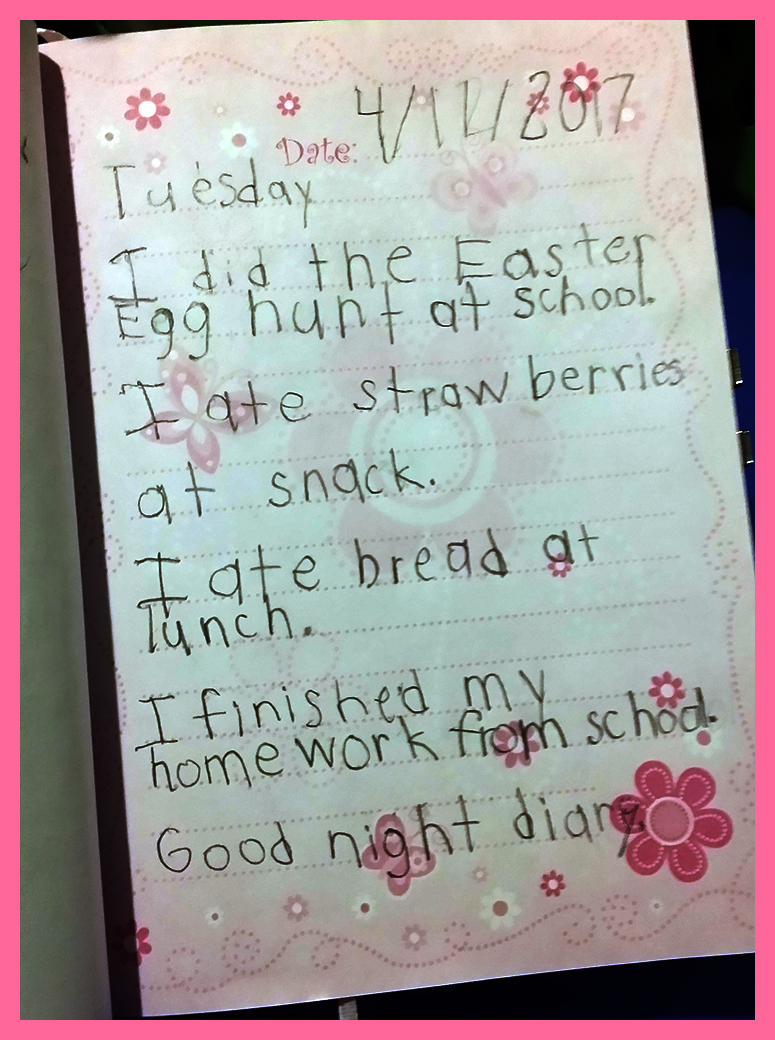 Date: 4/11/2017
Tuesday
I did the Easter
Egg hunt at school.
I ate strawberries
at snack.
I ate bread at
lunch.
I finished my
homework from school.
Good night diary